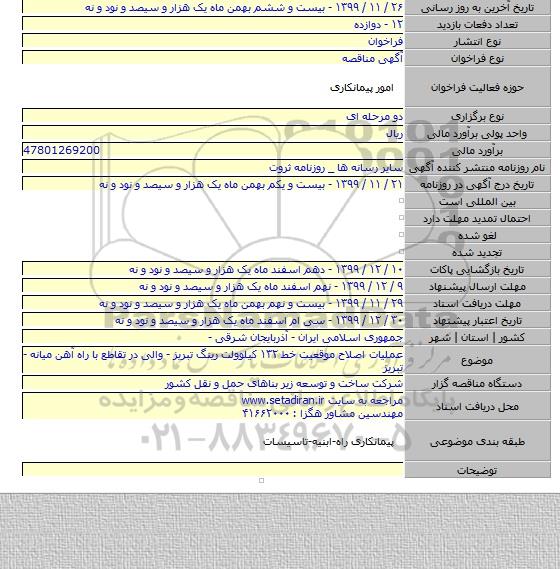 تاریخ آخرین به روز رسانی ۲۶ / ۱۱ / ۱۳۹۹ - بیست و ششم بهمن ماه یک هزار و سیصد و نود و نه
تعداد دفعات بازدید ۱۲ - دوازده
نوع انتشار فراخوان
نوع فراخوان آگهی مناقصه
حوزه فعالیت فراخوان امور پیمانکاری
نوع برگزاری دو مرحله ای
واحد پولی برآورد مالی ریال
برآورد مالی 47801269200
نام روزنامه منتشر کننده آگهی سایر رسانه ها _ روزنامه ثروت
تاریخ درج آگهی در روزنامه ۲۱ / ۱۱ / ۱۳۹۹ - بیست و یکم بهمن ماه یک هزار و سیصد و نود و نه
بین المللی است
احتمال تمدید مهلت دارد
لغو شده
تجدید شده
تاریخ بازگشایی پاکات ۱۰ / ۱۲ / ۱۳۹۹ - دهم اسفند ماه یک هزار و سیصد و نود و نه
مهلت ارسال پیشنهاد ۹ / ۱۲ / ۱۳۹۹ - نهم اسفند ماه یک هزار و سیصد و نود و نه
مهلت دریافت اسناد ۲۹ / ۱۱ / ۱۳۹۹ - بیست و نهم بهمن ماه یک هزار و سیصد و نود و نه
تاریخ اعتبار پیشنهاد ۳۰ / ۱۲ / ۱۳۹۹ - سی ام اسفند ماه یک هزار و سیصد و نود و نه
کشور | استان | شهر جمهوری اسلامی ایران - آذربایجان شرقی -
موضوع عملیات اصلاح موقعیت خط ۱۳۲ کیلوولت رینگ تبریز - والی در تقاطع با راه آهن میانه -
تبریز
دستگاه مناقصه گزار شرکت ساخت و توسعه زیر بناهای حمل و نقل کشور
محل دریافت اسناد مراجعه به سایت www.setadiran.ir
مهندسین مشاور هگزا : ۴۱۶۶۲۰۰۰
طبقه بندی موضوعی پیمانکاری راه-ابنیه-تاسیسات
توضیحات
۰۲۱-۸۸۳۴۹۶۷۰-۵